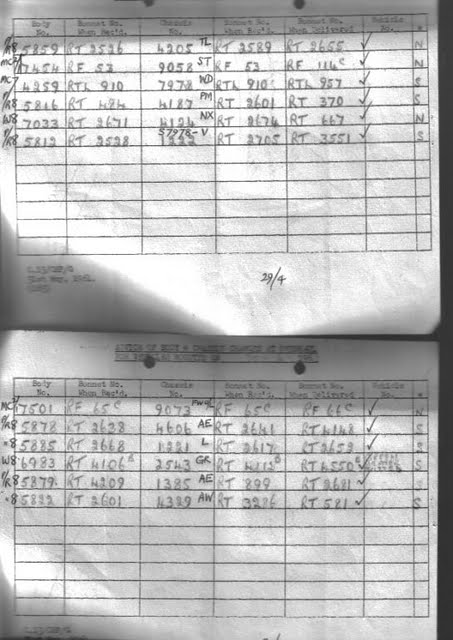 Body No. Bonnet No. When Rec'd. Chassis No. Bonnet No. When Rec'd. Bonnet No. When Delivered Vehicle No. *
P/R8 5859 RT 2526 4205 TL RT 2589 RT 2655 ✓ N
MC7 7454 RF 53 9058 ST RF 53 RF 114c ✓ N
MC7 4259 RTL 910 7978 WD RTL 910 RTL 957 ✓ S
P/R8 5816 RT 484 4187 PM RT 2601 RT 370 ✓ S
W8 7033 RT 2671 4124 NX RT 2674 RT 667 ✓ N
P/R8 5812 RT 2528 57978-V 1222 RT 2705 RT 3551 ✓ S
31st May, 1961.
29/4
ADVICE OF BODY & CHASSIS CHANGES AT
Body No. Bonnet No. When Rec'd. Chassis No. Bonnet No. When Rec'd. Bonnet No. When Delivered Vehicle No. *
7501 RF 65c 9073 RF 65c RF 66c ✓ N
P/R8 5878 RT 2638 4606 AE RT 2641 RT 4148 ✓ S
"8 5885 RT 2668 1221 L RT 2617 RT 2653 ✓ S
W8 6983 RT 4106B 2543 GR RT 4112B RT 4550 ✓ S
P/R8 5879 RT 4209 1385 AE RT 899 RT 2681 ✓ S
"8 5822 RT 2601 4329 AW RT 3286 RT 581 ✓ S
28/4